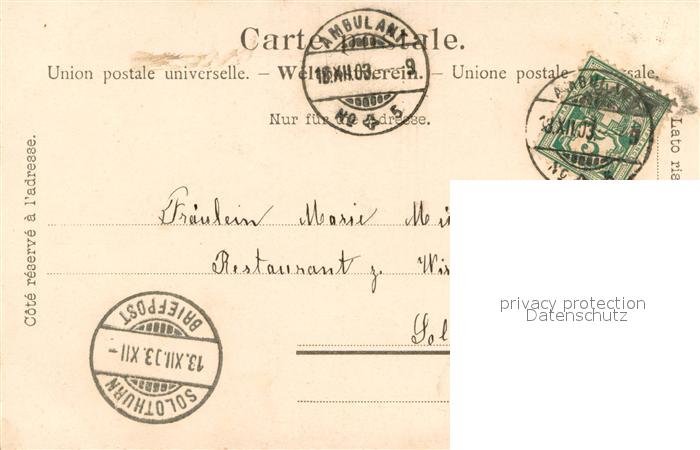 Carte postale.
Union postale universelle. — Weltpostverein. — Unione postale universale.
Nur für die Adresse.
Côté réservé à l'adresse.
Lato ris
AMBULANT
13.XII.03. -9
No 5
AMBULANT
13.XII.03. -9
No 5
5
Fräulein Marie Mü
Restaurant z. Wis
Sol
SOLOTHURN
13.XII.03 XII-
BRIEFPOST
privacy protection
Datenschutz